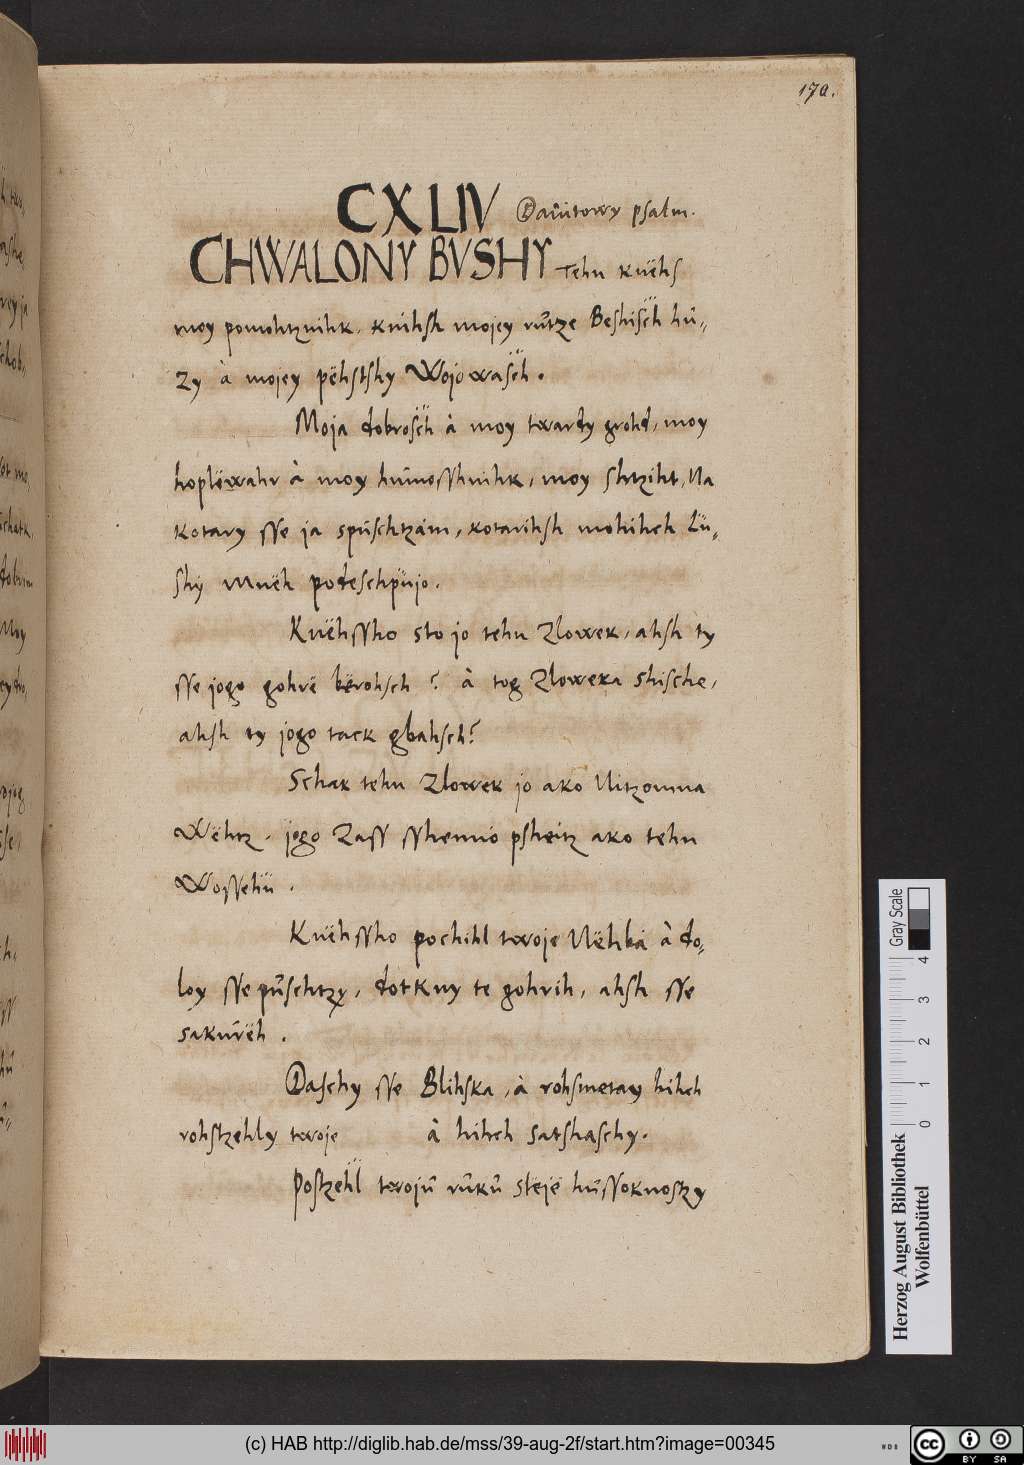 170.
CXLIV Dawitowy psalm.
CHWALONY BVSHY Tehn knëhs
moy pomohtznihk, knihsh mojey rutze Beshisch hu=
zy à mojey pëhstshy Wojowasch.
Moja dobrosch à moy twardy grohd, moy
hoplëwahr à moy humosshnihk, moy shtziht, Na
kotary sse ja spuschtzám, kotarihsh mohihch Lü=
shÿ mnëh podeschpüjo.
Knëhssho sto jo tehn Zlowek, ahsh ty
sse jogo gohrë bërohsch? à tog Zloweka Shische,
ahsh ty jogo tack gbahsch?
Schak tehn Zlowek jo ako Nitzomna
Wëhtz. jogo Zass sshenno psheitz ako tehn
Wossehü.
Knëhssho pochihl twoje Nëhbá à do=
loy sse püschtzy, dotkny te gohrih, ahsh sse
sakurëh.
Daschy sse Blihska, à rohsmetay hihch
rohstzehly twoje à hihch satshaschy.
Postzehl twoju ruku steje hussoknostzy
Gray Scale
0 1 2 3 4
Herzog August Bibliothek
Wolfenbüttel
(c) HAB http://diglib.hab.de/mss/39-aug-2f/start.htm?image=00345
cc BY SA